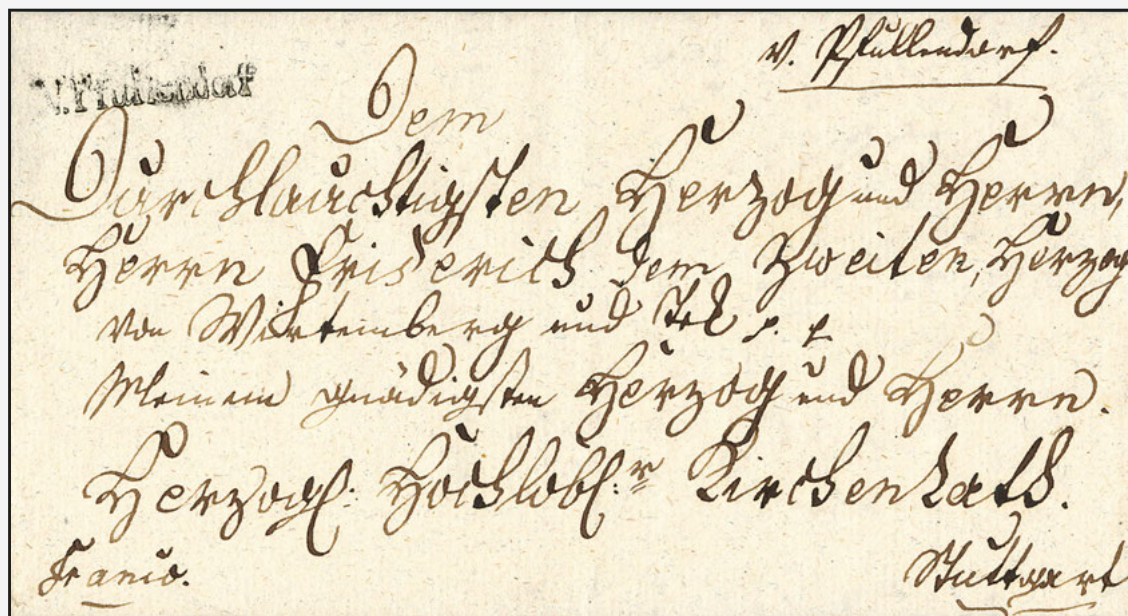 v. Pfullendorf.
V. Pfullendorf
Dem
Durchlauchtigsten Herzog und Herrn,
Herrn Friderich dem Zweiten, Herzog
von Wirtemberg und Tek p. p.
Meinem gnädigsten Herzog und Herrn.
Herzogl: Hochlöbl:r Kirchen Rath.
Franco.
Stuttgart